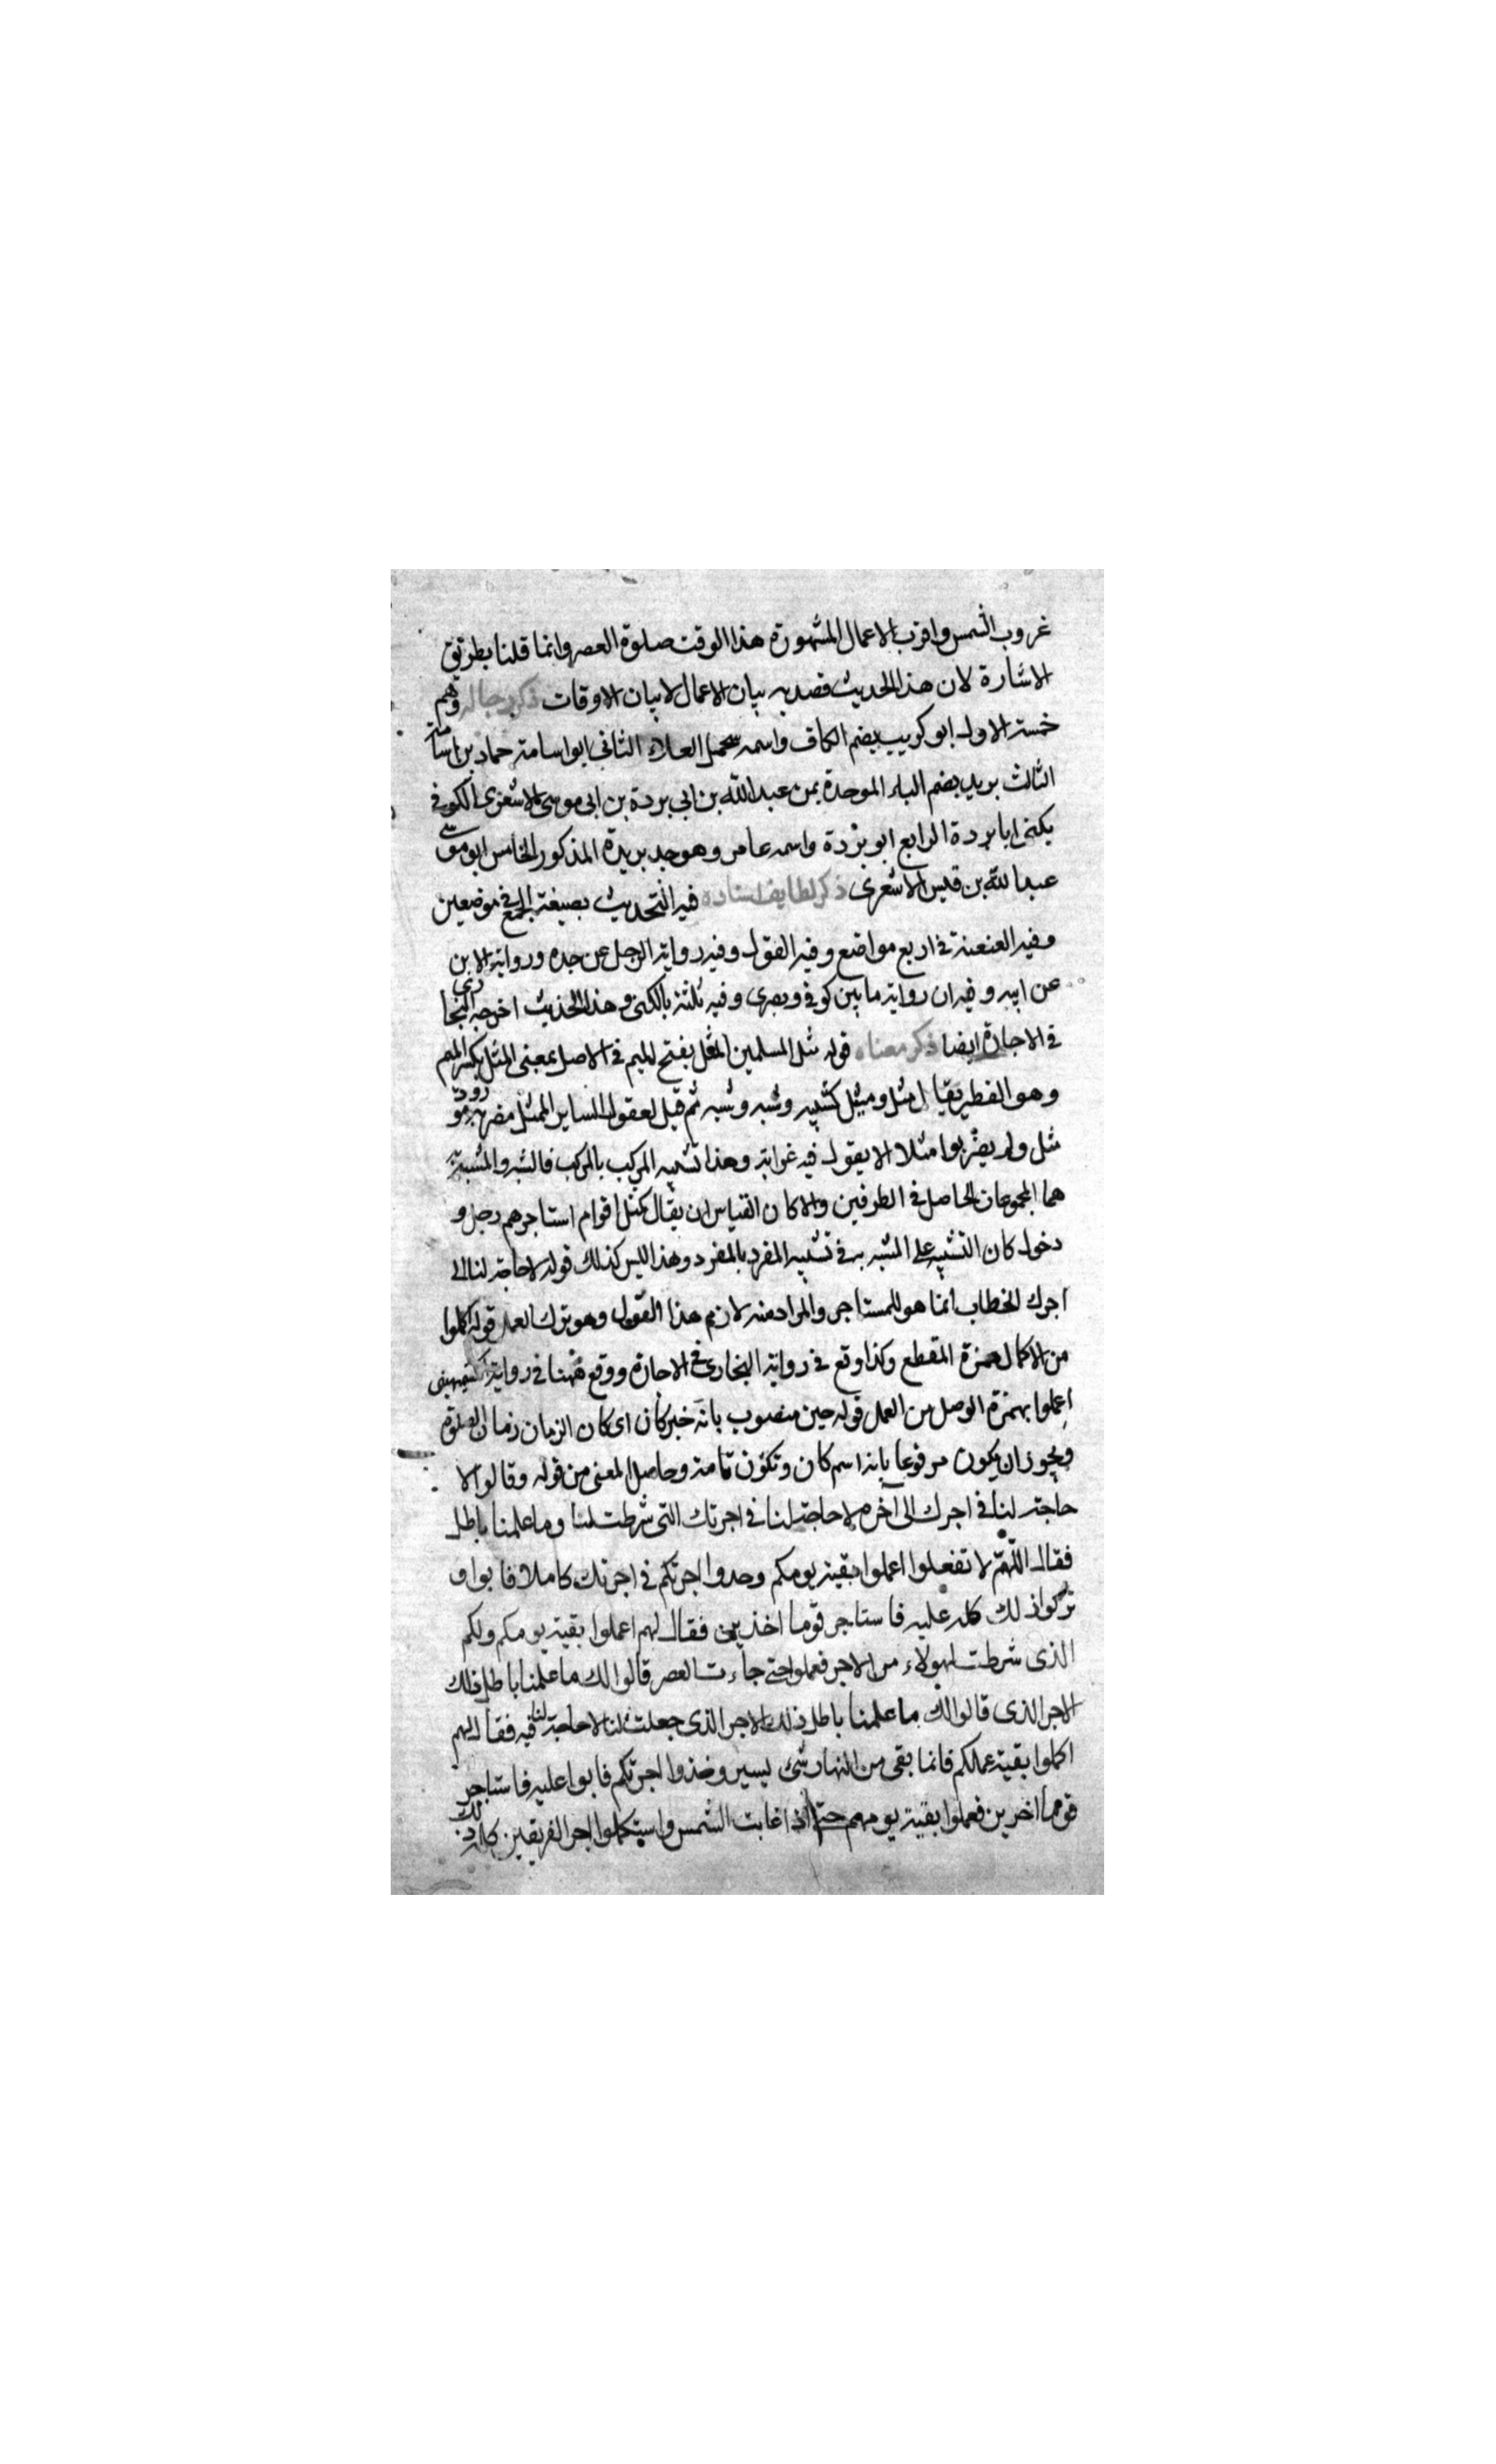 غروب الشمس واقرب الاعمال المشهورة هذا الوقت صلوة العصر وانما قلنا بطريق
الاشارة لان هذا الحديث قصد به بيان الاعمال لا بيان الاوقات ذكر رجاله وهم
خمسة الاول ابو كريب بضم الكاف واسمه محمد العلاء الثاني ابو اسامة حماد بن اسامة
الثالث بريد بضم الباء الموحدة بن عبد الله بن ابي بردة بن ابي موسى الاشعري الكوفي
يكنى ابا بردة الرابع ابو بردة واسمه عامر وهو جد بريدة المذكور الخامس ابو موسى
عبد الله بن قيس الاشعرى ذكر لطايف اسناده فيه التحديث بصيغة الجمع في موضعين
وفيه العنعنة في اربع مواضع وفيه القول وفيه رواية الرجل عن جده ورواية الابن
عن ابيه وفيه ان رواية ما بين كوفي وبصرى وفيه ثلثة بالكنى وهذا الحديث اخرجه البخاري
في الاجارة ايضا ذكر معناه قوله مثل المسلمين المثل بفتح الميم في الاصل بمعنى المثل بكسر الميم
وهو النظير يقال مثل ومثيل كشبيه وشبه وشبه ثم قيل لعقول الساير الممثل مضربه بمورده
مثل ولم يضربوا مثلا الا بقول فيه غرابة وهذا تشبيه المركب بالمركب فالشبه والمشبه به
هما المجموعان الحاصل في الطرفين والا كان القياس ان يقال كمثل اقوام استاجرهم رجل و
دخول كان التشبيه على المشبه به في تشبيه المفرد بالمفرد وهذا ليس كذلك قوله لا حاجة لنا الى
اجرك الخطاب انما هو للمستاجر والمراد منه لازم هذا القول وهو ترك العمل قوله اكملوا
من الاكمال همزة القطع وكذا وقع في رواية البخارى في الاجارة ووقع ههنا في رواية
اعملوا بهمزة الوصل من العمل قوله حين منصوب بانه خبر كان اى كان الزمان زمان الصلوة
ويجوز ان يكون مرفوعا بانه اسم كان وتكون تامة وحاصل المعنى من قوله وقالوا لا
حاجة لنا في اجرك الى آخره لا حاجة لنا في اجرتك التى شرطت لنا وما علمنا باطل
فقال اللهم لا تفعلوا اعملوا بقية يومكم وحدوا اجرتكم في اجرتك كاملا فابوا و
تركوا ذلك كله عليه فاستاجر قوما اخذيمن فقال لهم اعملوا بقية يومكم ولكم
الذى شرطت لهولاء من الاجر فعملوا حتى جاءت العصر قالوا لك ما علمنا باطل فلك
الاجر الذى قالوا لك ما علمنا باطل ذلك الاجر الذى جعلت لنا لا حاجة لنا فيه فقال لهم
اكملوا بقية عملكم فانما بقى من النهار شئ يسير وخذوا اجرتكم فابوا عليه فاستاجر
قوما اخرين فعملوا بقية يومهم حتى اذا غابت الشمس واستكملوا اجر الفريقين كله ذلك